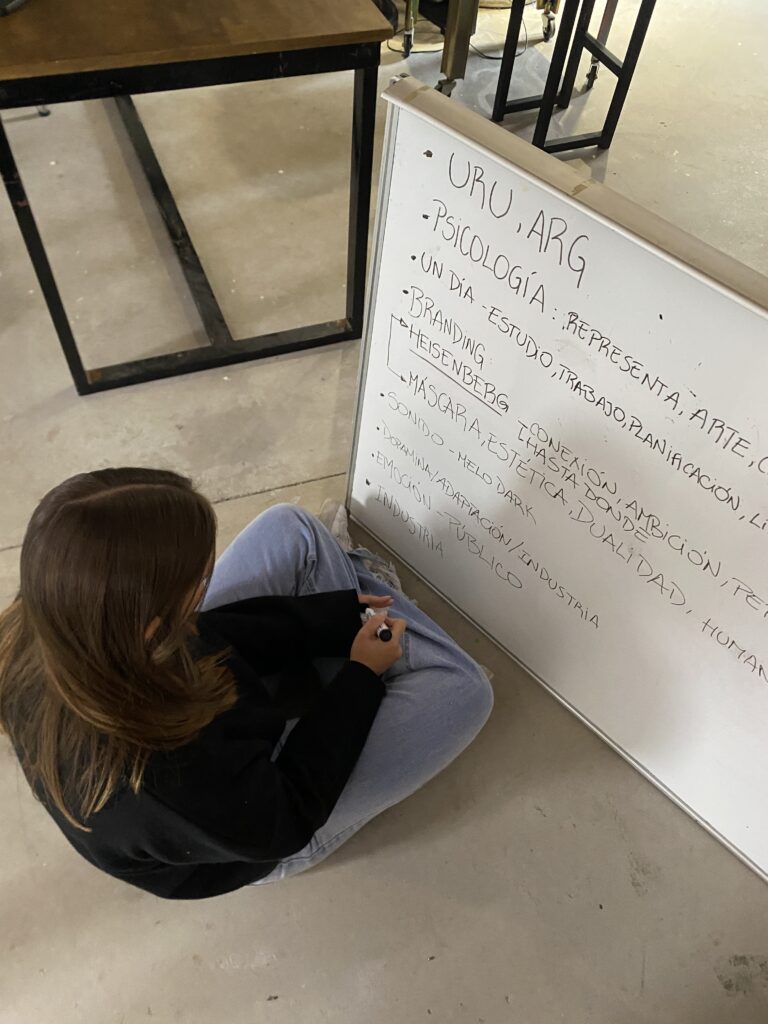 • URU, ARG
• PSICOLOGÍA: REPRESENTA, ARTE, C
• UN DÍA - ESTUDIO, TRABAJO, PLANIFICACIÓN, LI
• BRANDING:
HEISENBERG - CONEXIÓN, AMBICIÓN, PE
HASTA DONDE
• MÁSCARA, ESTÉTICA, DUALIDAD, HUMAN
• SONIDO - MELO DARK
• DOPAMINA/ADAPTACIÓN/INDUSTRIA
• EMOCIÓN - PÚBLICO
• INDUSTRIA